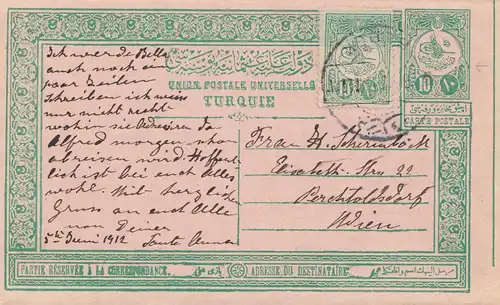 دولت عليهٔ عثمانيه پوسته لرى
UNION POSTALE UNIVERSELLE
TURQUIE
10 ١٠
CARTE POSTALE
Ich werde Bella
auch noch ein
paar Zeilen
schreiben ich weiss
nur nicht recht
wohin sie Adresiren da
Alfred morgen schon
abreisen wird Hoffent
lich ist bei euch Alles
wohl. Mit herzlichen
Gruss an euch Alle
von Deiner
5ten Juni 1912 Tante Anna
Frau H.
Elisabeth-Str. 22
Perchtoldsdorf
Wien
PARTIE RÉSERVÉE À LA CORRESPONDANCE
ADRESSE DU DESTINATAIRE